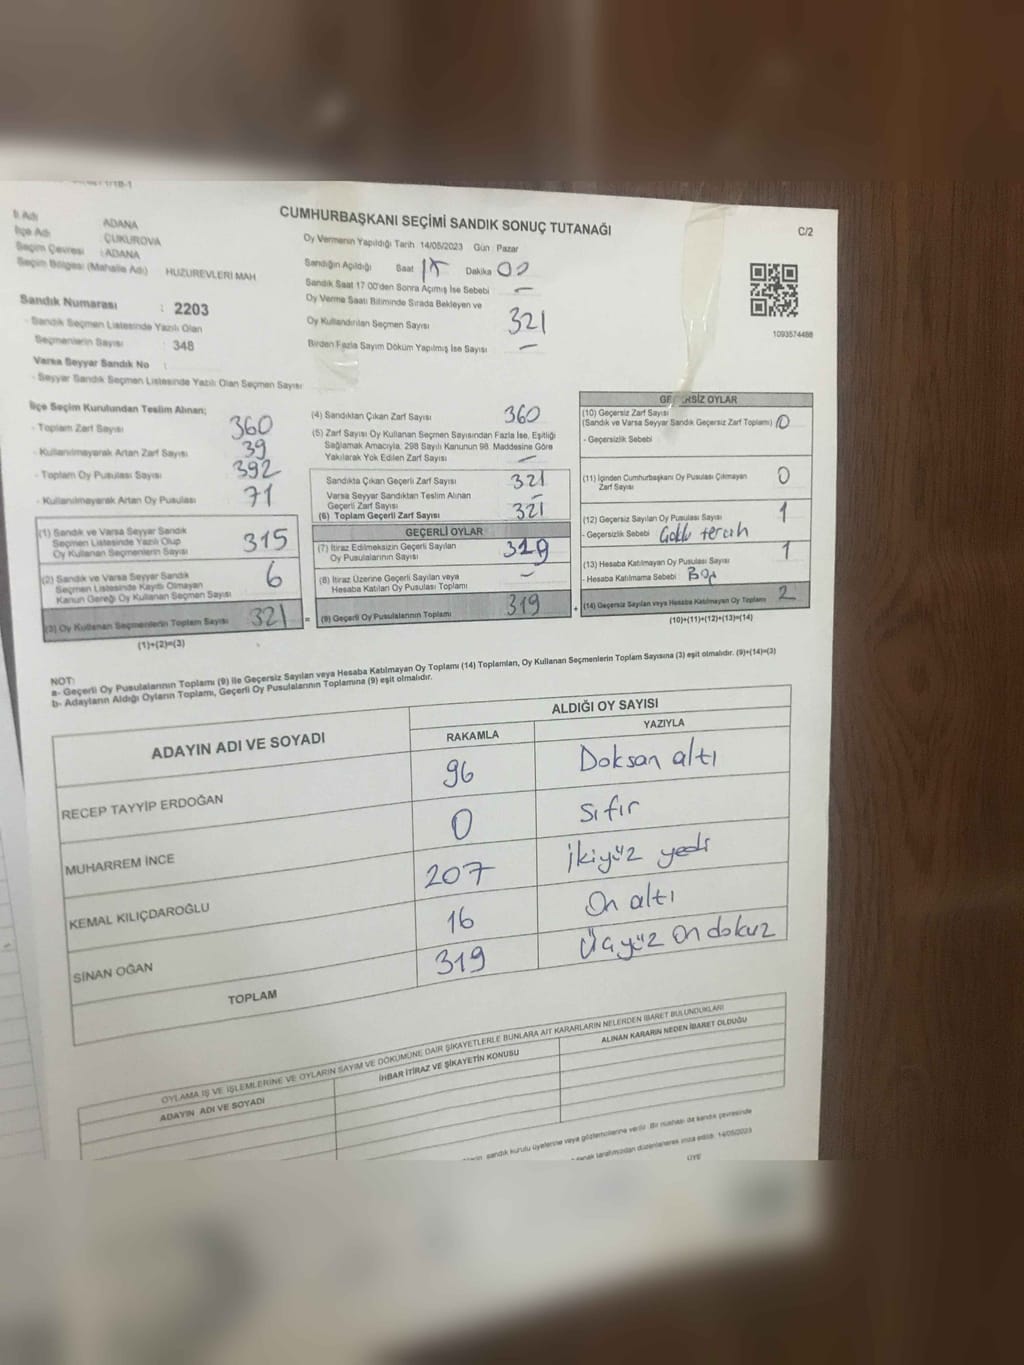 C/2
CUMHURBAŞKANI SEÇİMİ SANDIK SONUÇ TUTANAĞI
İl Adı : ADANA
İlçe Adı : ÇUKUROVA
Seçim Çevresi : ADANA
Seçim Bölgesi (Mahalle Adı) HUZUREVLERİ MAH
Sandık Numarası : 2203
- Sandık Seçmen Listesinde Yazılı Olan
Seçmenlerin Sayısı : 348
Varsa Seyyar Sandık No :
- Seyyar Sandık Seçmen Listesinde Yazılı Olan Seçmen Sayısı
Oy Vermenin Yapıldığı Tarih : 14/05/2023 Gün : Pazar
Sandığın Açıldığı Saat Dakika 00
Sandık Saat 17.00'den Sonra Açılmış İse Sebebi : -
Oy Verme Saati Bitiminde Sırada Bekleyen ve
Oy Kullandırılan Seçmen Sayısı 321
Birden Fazla Sayım Döküm Yapılmış İse Sayısı -
1093574488
İlçe Seçim Kurulundan Teslim Alınan;
- Toplam Zarf Sayısı 360
- Kullanılmayarak Artan Zarf Sayısı 39
- Toplam Oy Pusulası Sayısı 392
- Kullanılmayarak Artan Oy Pusulası 71
(1) Sandık ve Varsa Seyyar Sandık
Seçmen Listesinde Yazılı Olup
Oy Kullanan Seçmenlerin Sayısı 315
(2) Sandık ve Varsa Seyyar Sandık
Seçmen Listesinde Kayıtlı Olmayan
Kanun Gereği Oy Kullanan Seçmen Sayısı 6
(3) Oy Kullanan Seçmenlerin Toplam Sayısı 321
(1)+(2)=(3)
(4) Sandıktan Çıkan Zarf Sayısı 360
(5) Zarf Sayısı Oy Kullanan Seçmen Sayısından Fazla İse, Eşitliği
Sağlamak Amacıyla, 298 Sayılı Kanunun 98. Maddesine Göre
Yakılarak Yok Edilen Zarf Sayısı -
Sandıkta Çıkan Geçerli Zarf Sayısı 321
Varsa Seyyar Sandıktan Teslim Alınan
Geçerli Zarf Sayısı -
(6) Toplam Geçerli Zarf Sayısı 321
GEÇERLİ OYLAR
(7) İtiraz Edilmeksizin Geçerli Sayılan
Oy Pusulalarının Sayısı 319
(8) İtiraz Üzerine Geçerli Sayılan veya
Hesaba Katılan Oy Pusulası Toplamı -
= (9) Geçerli Oy Pusulalarının Toplamı 319 +
GEÇERSİZ OYLAR
(10) Geçersiz Zarf Sayısı
(Sandık ve Varsa Seyyar Sandık Geçersiz Zarf Toplamı) 0
- Geçersizlik Sebebi :
(11) İçinden Cumhurbaşkanı Oy Pusulası Çıkmayan
Zarf Sayısı 0
(12) Geçersiz Sayılan Oy Pusulası Sayısı 1
- Geçersizlik Sebebi : Çoklu tercih
(13) Hesaba Katılmayan Oy Pusulası Sayısı 1
- Hesaba Katılmama Sebebi : Boş
(14) Geçersiz Sayılan veya Hesaba Katılmayan Oy Toplamı 2
(10)+(11)+(12)+(13)=(14)
NOT:
a- Geçerli Oy Pusulalarının Toplamı (9) ile Geçersiz Sayılan veya Hesaba Katılmayan Oy Toplamı (14) Toplamları, Oy Kullanan Seçmenlerin Toplam Sayısına (3) eşit olmalıdır. (9)+(14)=(3)
b- Adayların Aldığı Oyların Toplamı, Geçerli Oy Pusulalarının Toplamına (9) eşit olmalıdır.
ADAYIN ADI VE SOYADI ALDIĞI OY SAYISI
RAKAMLA YAZIYLA
RECEP TAYYİP ERDOĞAN 96 Doksan altı
MUHARREM İNCE 0 Sıfır
KEMAL KILIÇDAROĞLU 207 İkiyüz yedi
SİNAN OĞAN 16 On altı
TOPLAM 319 Üçyüz On dokuz
OYLAMA İŞ VE İŞLEMLERİNE VE OYLARIN SAYIM VE DÖKÜMÜNE DAİR ŞİKAYETLERLE BUNLARA AİT KARARLARIN NELERDEN İBARET BULUNDUKLARI
ADAYIN ADI VE SOYADI İHBAR İTİRAZ VE ŞİKAYETİN KONUSU ALINAN KARARIN NEDEN İBARET OLDUĞU
sandık kurulu üyelerine veya gözlemcilerine verildi. Bir nushası da sandık çevresinde
tarafımızdan düzenlenerek imza edildi. 14/05/2023
ÜYE